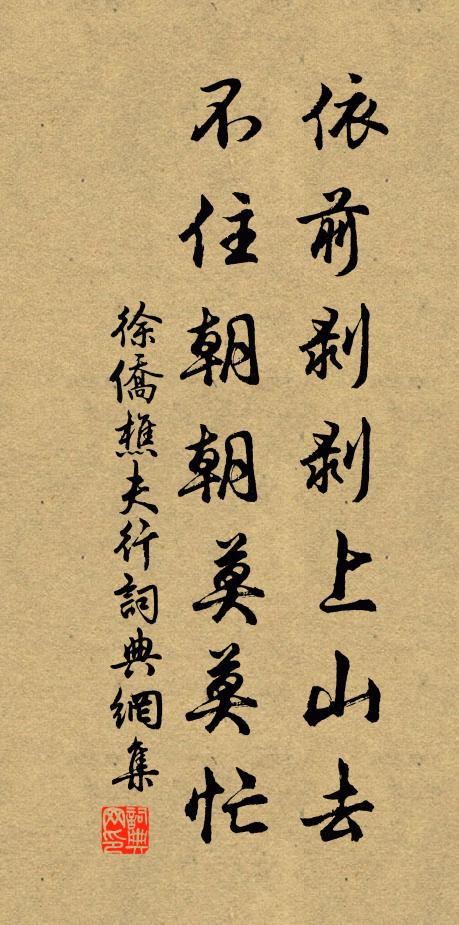 依前剥剥上山去
不住朝朝莫莫忙
徐僑樵夫行詞典網集
詞典網印